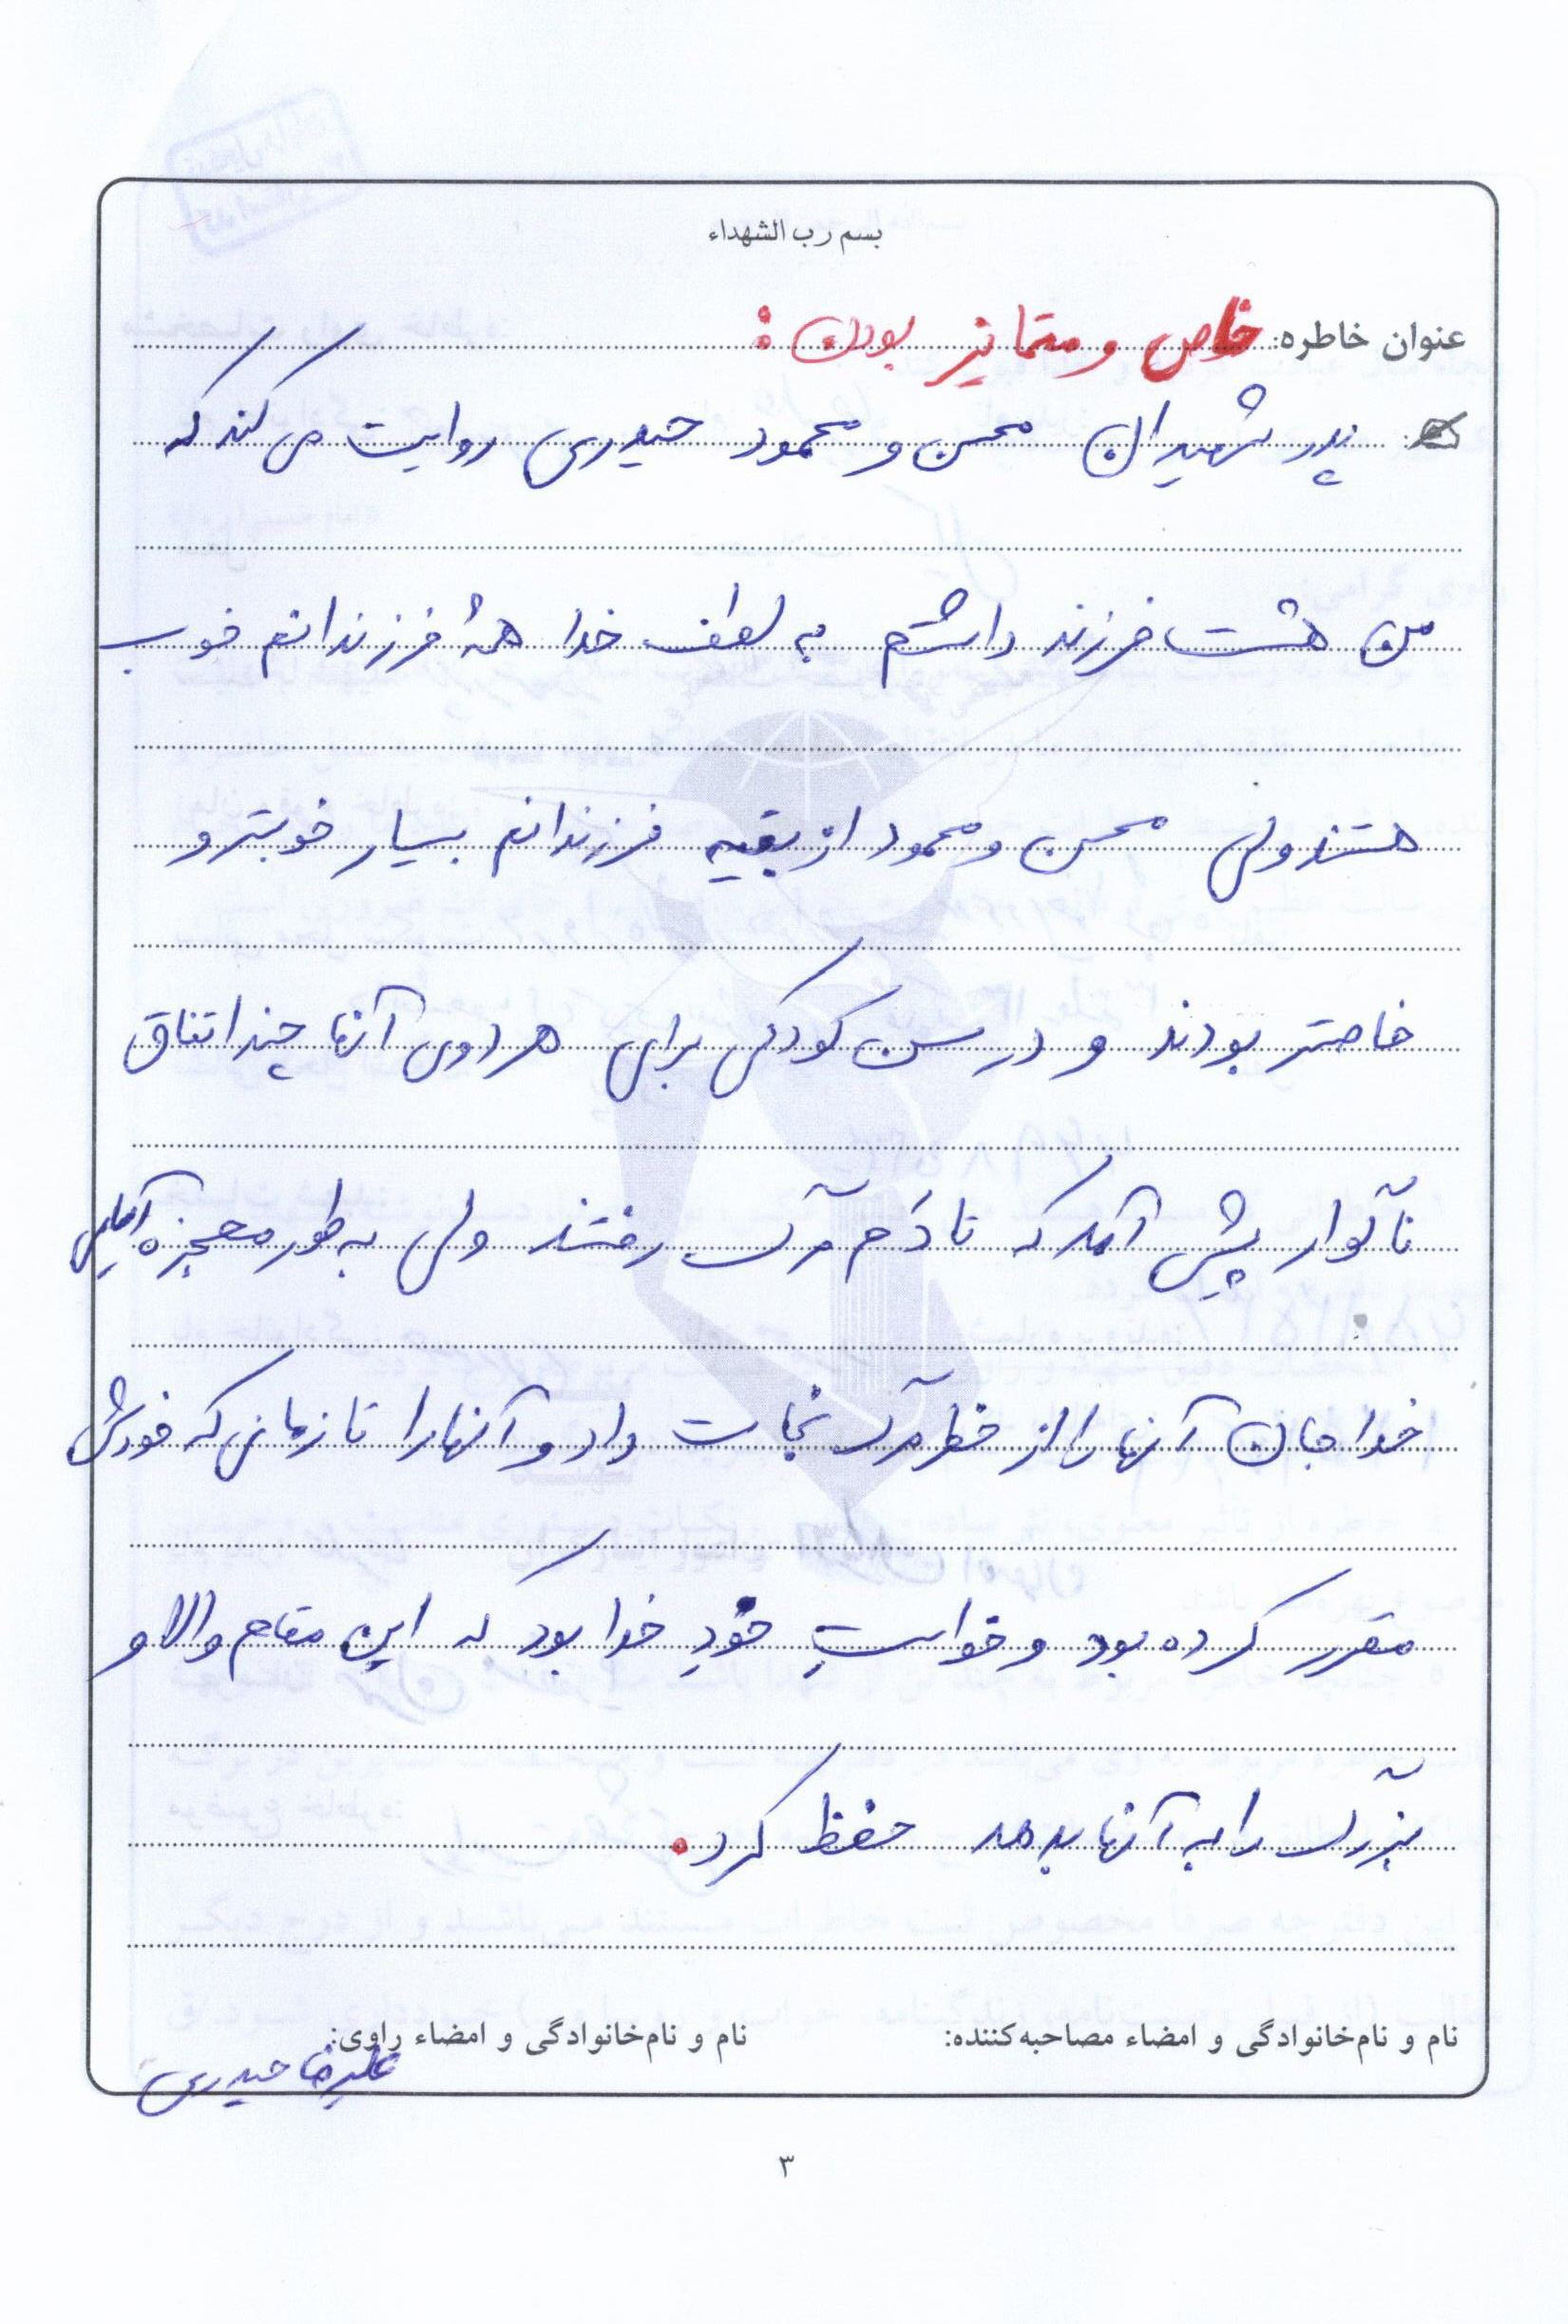 بسم رب الشهداء
عنوان خاطره: خاص و متمایز بودن:
پدر شهیدان محسن و محمود حیدری روایت می کند که
من هشت فرزند داشتم به لطف خدا همهٔ فرزندانم خوب
هستند ولی محسن و محمود از بقیه فرزندانم بسیار خوبتر و
خاصتر بودند و در سن کودکی برای هر دوی آنها چند اتفاق
ناگوار پیش آمد که تا دَم مرگ رفتند ولی به طور معجزه آسایی
خدا جان آنها را از خطر مرگ نجات داد و آنها را تا زمانی که خودش
مقرر کرده بود و خواستِ خودِ خدا بود که این مقام والا و
بزرگ را به آنها بدهد حفظ کرد.
نام و نام‌خانوادگی و امضاء مصاحبه‌کننده: نام و نام‌خانوادگی و امضاء راوی:
علیرضا حیدری
۳